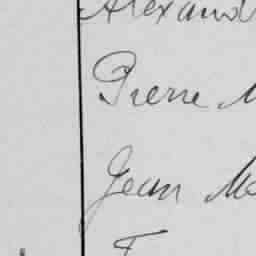 Alexand
Pierre M
Jean Mc